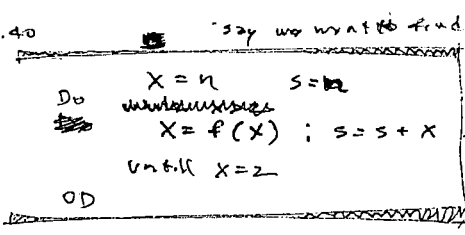 .40 say we want to find
x = n s = n
Do
x = f(x) ; s = s + x
untill x = 2
OD